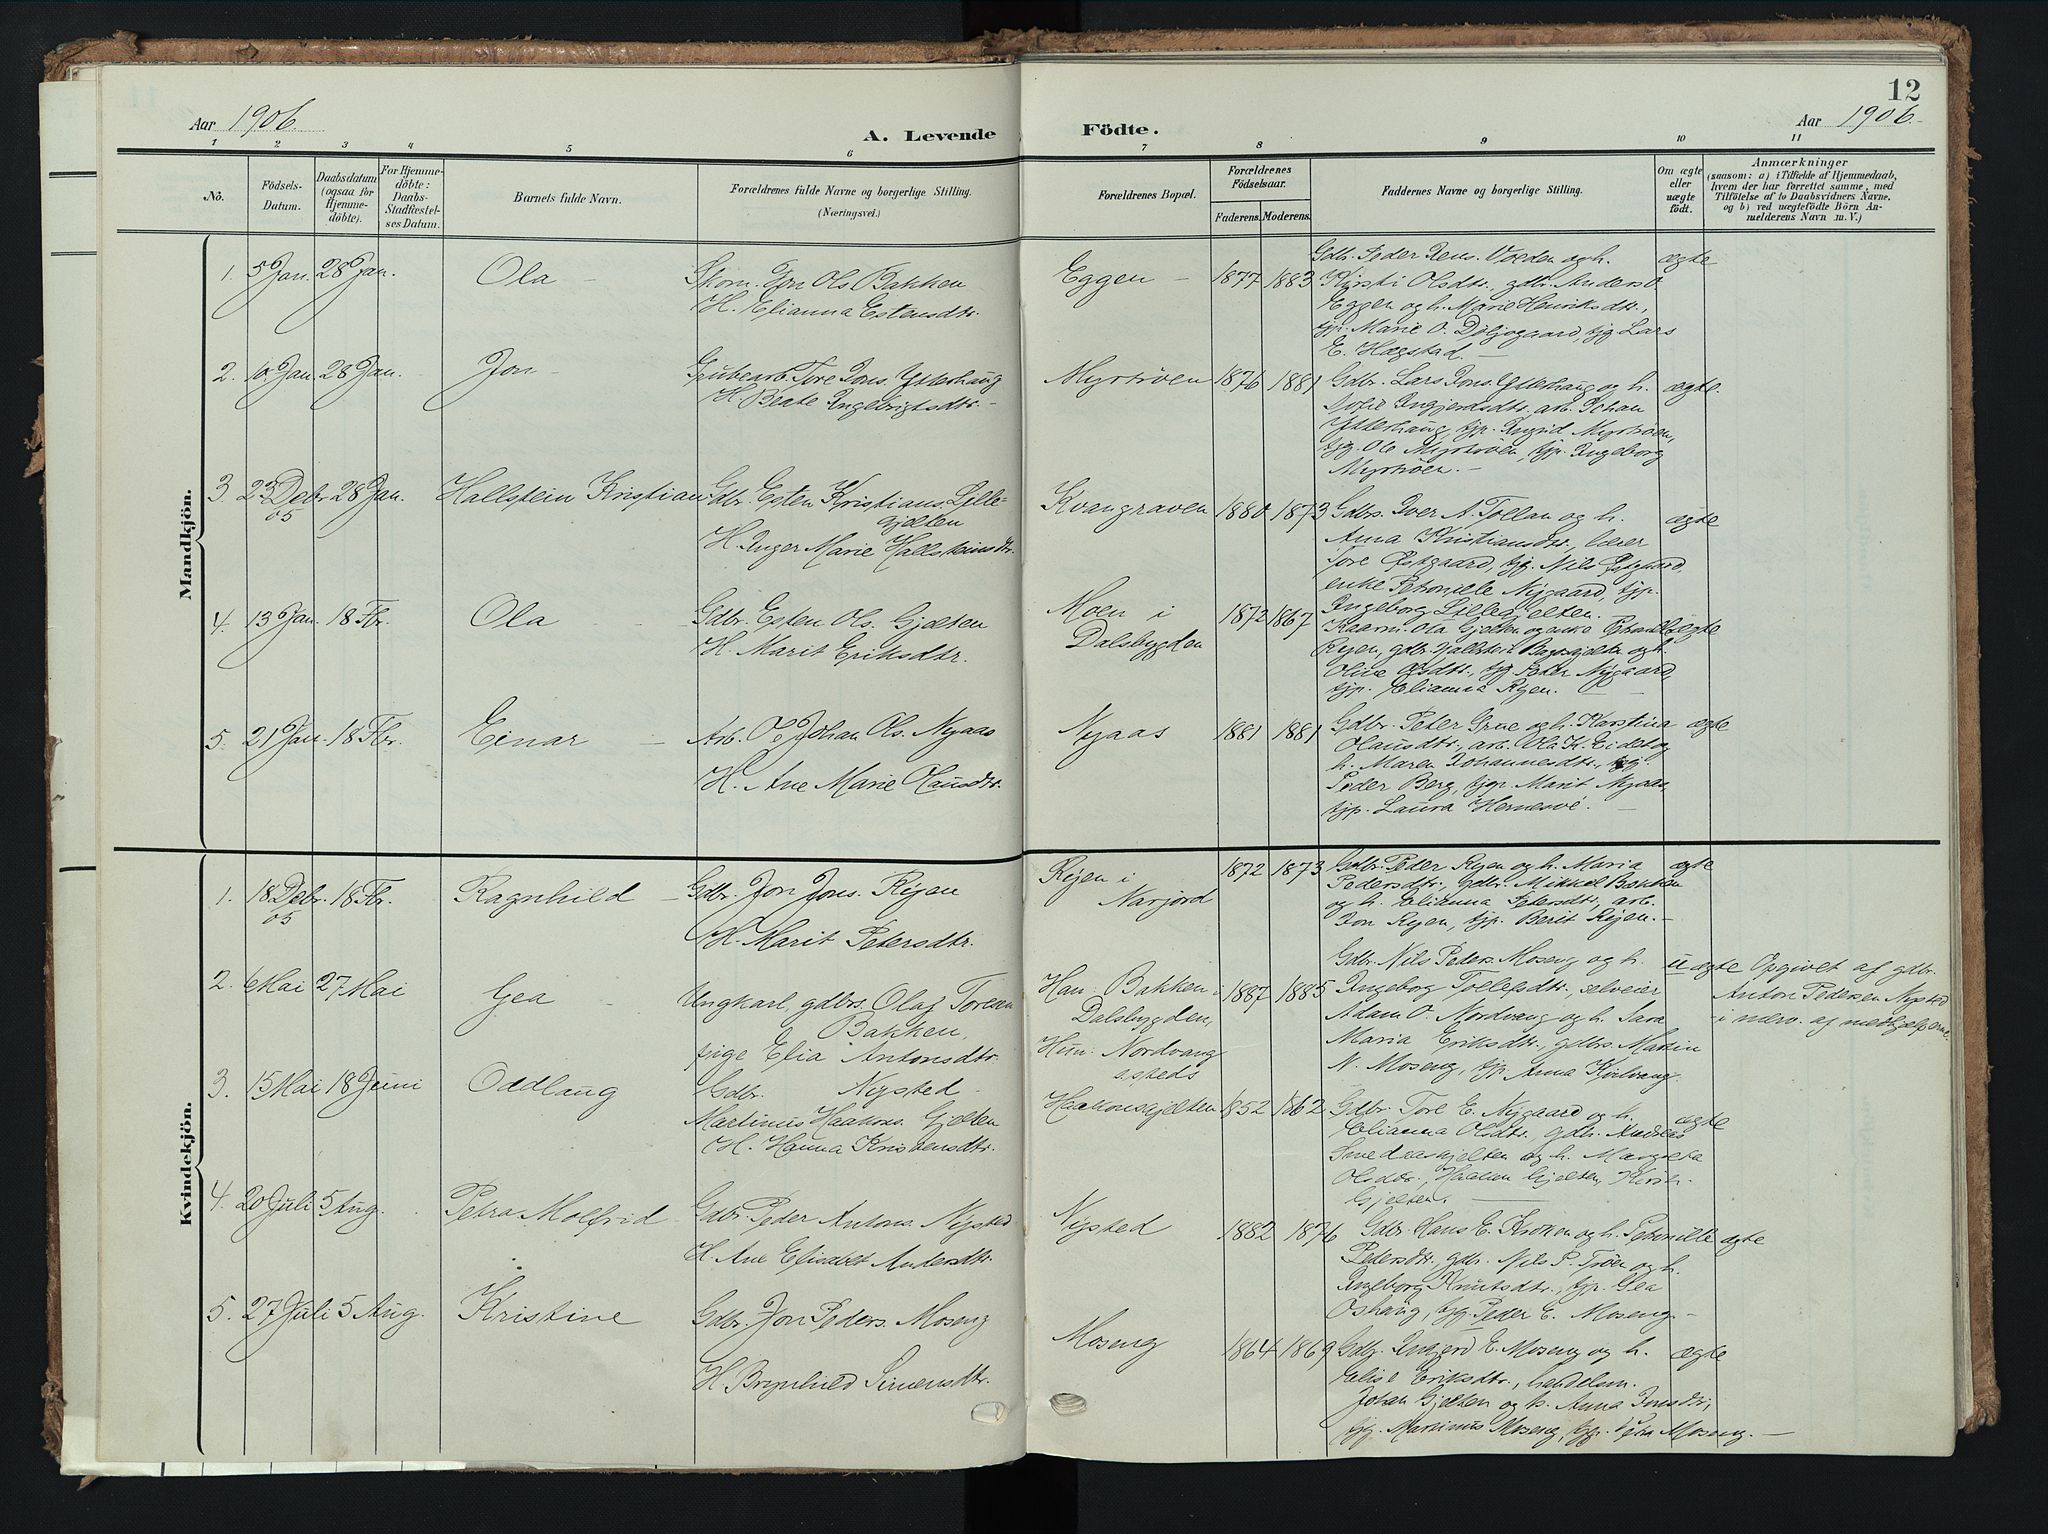 12
Aar 1906.
A. Levende Födte.
Aar 1906.
1 2 3 4 5 6 7 8 9 10 11
No.
Födsels-
Datum.
Daabsdatum
(ogsaa for
Hjemme-
döbte).
For Hjemme-
döbte:
Daabs-
Stadfæstel-
ses Datum.
Barnets fulde Navn.
Forældrenes fulde Navne og borgerlige Stilling.
(Næringsvei.)
Forældrenes Bopæl.
Forældrenes
Födselsaar.
Faderens. Moderens.
Faddernes Navne og borgerlige Stilling.
Om ægte
eller
uægte
födt.
Anmærkninger
(saasom: a) i Tilfælde af Hjemmedaab,
hvem der har forrettet samme, med
Tilföielse af to Daabsvidners Navne,
og b) ved uægtefödte Börn An-
melderens Navn m. V.)
Mandkjön.
1. 5 Jan. 28 Jan. Ola -
Skom. Jon Ols. Bakken
H. Elianna Estensdtr.
Eggen - 1877 1883
Gdbr. Peder Jens. Voeden og h.
Kirsti Olsdtr., gdbr. Anders O.
Eggen og h. Marie Henriksdtr.,
tjp. Marie O. Döljegaard, tjg. Lars
E. Hægstad. -
ægte
2. 10 Jan. 28 Jan. Jon -
Grubearb. Tore Jons. Ytterhaug
H. Beate Ingebrigtsdtr. -
Myrtröen 1876 1881
Gdbr. Lars Jons. Ytterhaug og h.
Sofie Ingjerdsdtr. arb. Johan
Ytterhaug, tjp. Ingrid Myrtröen,
tjg. Ole Myrtröen, tjp. Ingeborg
Myrtröen. -
ægte.
3. 23 Debr. 05 28 Jan. Hallstein Kristian
Gdbr. Esten Kristians. Lille-
gjelten
H. Inger Marie Hallsteinsdtr.
Kvangraven 1880 1873
Gdbrs. Iver A. Tollan og h.
Anna Kristiansdtr., lærer
Tore Østgaard, tjg. Nils Østgaard,
enke Petronille Nygaard, tjp.
Ingeborg Lillegjelten.
ægte
4. 13 Jan. 18 Fbr. Ola
Gdbr. Esten Ols. Gjelten
H. Marit Eriksdtr.
Moen i
Dalsbygden
1872 1867
Kaarm. Ola Gjelten og enke Petronille
Ryen, gdbr. Hallstein Bakosgjelten og h.
Olive Olsdtr., tjg. Peter Nygaard,
tjp. Elianna Ryen. -
ægte
5. 21 Jan. 18 Fbr. Einar -
Arb. Johan Ols. Nyaas
H. Ane Marie Olausdtr.
Nyaas 1881 1881
Gdbr. Peter Grue og h. Karstina
Olausdtr., arb. Ola K. Eidet og
h. Maren Johannesdtr., tjg.
Peder Berg, tjp. Marit Nyaas,
tjp. Laura Hernesvé. -
ægte
Kvindekjön.
1. 18 Debr. 05 18 Fbr. Ragnhild -
Gdbr. Jon Jons. Ryen
H. Marit Petersdtr.
Ryen i
Narjord
1872 1873
Gdbr. Peder Ryen og h. Maria
Pedersdtr., gdbr. Mikkel Bakken
og h. Elianna Petersdtr., arb.
Jon Ryen, tjp. Berit Ryen. -
ægte
2. 6 Mai 27 Mai Gea -
Ungkarl, gdbrs. Olaf Toresen
Bakken,
pige Elia Antonsdtr.
Nysted
Han: Bakken i
Dalsbygden,
Hun: Nordvang
s. steds
1887 1885
Gdbr. Nils Peders. Moseng og h.
Ingeborg Tollefsdtr., selveier
Adam O. Nordvang og h. Sara
Maria Eriksdtr., gdbrs. Martin
N. Moseng, tjp. Anna Kvilvang.
uægte
Opgivet af gdbr.
Anton Pedersen Nysted
i nærv. af medhjælperne.
3. 15 Mai 18 Juni Oddlaug
Gdbr.
Martinus Haakons. Gjelten
H. Hanna Kristensdtr.
Haakonsgjelten 1852 1862
Gdbr. Tore E. Nygaard og h.
Elianna Olsdtr., gdbr. Andreas
Smedaasgjelten og h. Margreta
Olsdtr., Gjelten, Gjelten.
ægte
4. 20 Juli 5 Aug. Petra Molfrid
Gdbr. Peder Antons. Nysted
H. Ane Elisabet Andersdtr.
Nysted 1882 1876
Gdbr. Hans E. Kroken og h. Petronille
Pedersdtr., gdbr. Nils P. Tröen og h.
Ingeborg Knutsdtr., tjp. Gea
Oshaug, tjg. Peder E. Moseng. -
ægte
5. 27 Juli 5 Aug. Kristine
Gdbr. Jon Peders. Moseng
H. Brynhild Simensdtr.
Moseng 1864 1869
Gdbr. Ingjerd E. Moseng og h.
Elise Eriksdtr., handelsm.
Johan Gjelten og h. Anna Jonsdtr.,
tjg. Martinus Moseng, tjp. Petra Moseng. -
ægte